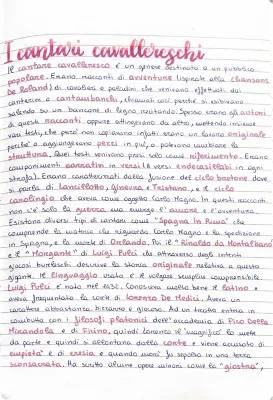 I cantari cavallereschi
Il cantare cavalleresco è un genere destinato a un pubblico
popolare. Erano racconti di avventure (ispirate alla chansons
De Roland) di cavalieri e paladini che venivano effettuati dai
canterini o cantambanchi, chiamati così perché si esibivano
salendo su un bancone di legno rialzato. Spesso erano gli autori
di questi racconti oppure attingevano da altri, mettendo insieme
vari testi, che però non copiavano infatti erano un lavoro originale
perché o aggiungevano pezzi in più, o potevano cambiare la
struttura. Quei testi venivano presi solo come riferimento. Erano
componimenti narrativi in versi (8 versi endecasillabi in ogni
strofa). Erano caratterizzati dalla fusione del ciclo bretone dove
si parla di Lancillotto, Ginevra e Tristano, e il ciclo
carolingio che aveva come oggetto Carlo Magno. In questi racconti
non c'è solo la guerra ma emerge l'amore e l'avventura.
Esistono diversi tipi di cantari come "Spagna in Rima" che
comprende la materia che riguarda Carlo Magno e la spedizione
in Spagna, e la morte di Orlando. Poi il "Rinaldo da Montalbano"
e il "Morgante" di Luigi Pulci che attraverso degli intenti
giocosi burleschi descrive la storia originale relativa a questo
gigante. Il linguaggio usato è il volgare semplice comprensibile.
Luigi Pulci è nato nel 1432. Conosceva molto bene il latino e
aveva frequentato la corte di Lorenzo De Medici. Aveva un
carattere abbastanza bizzarro e giocoso. Ad un tratto entra in
contrasto con i filosofi platonici dell'accademia di Pico Della
Mirandola e di Ficino, quindi Lorenzo il "magnifico" lo mette
da parte e quindi si allontana dalla corte e viene accusato di
empietà e di eresia e quando muore fu sepolto in una terra
sconsacrata. Ha scritto alcune opere minori come la "giostra",